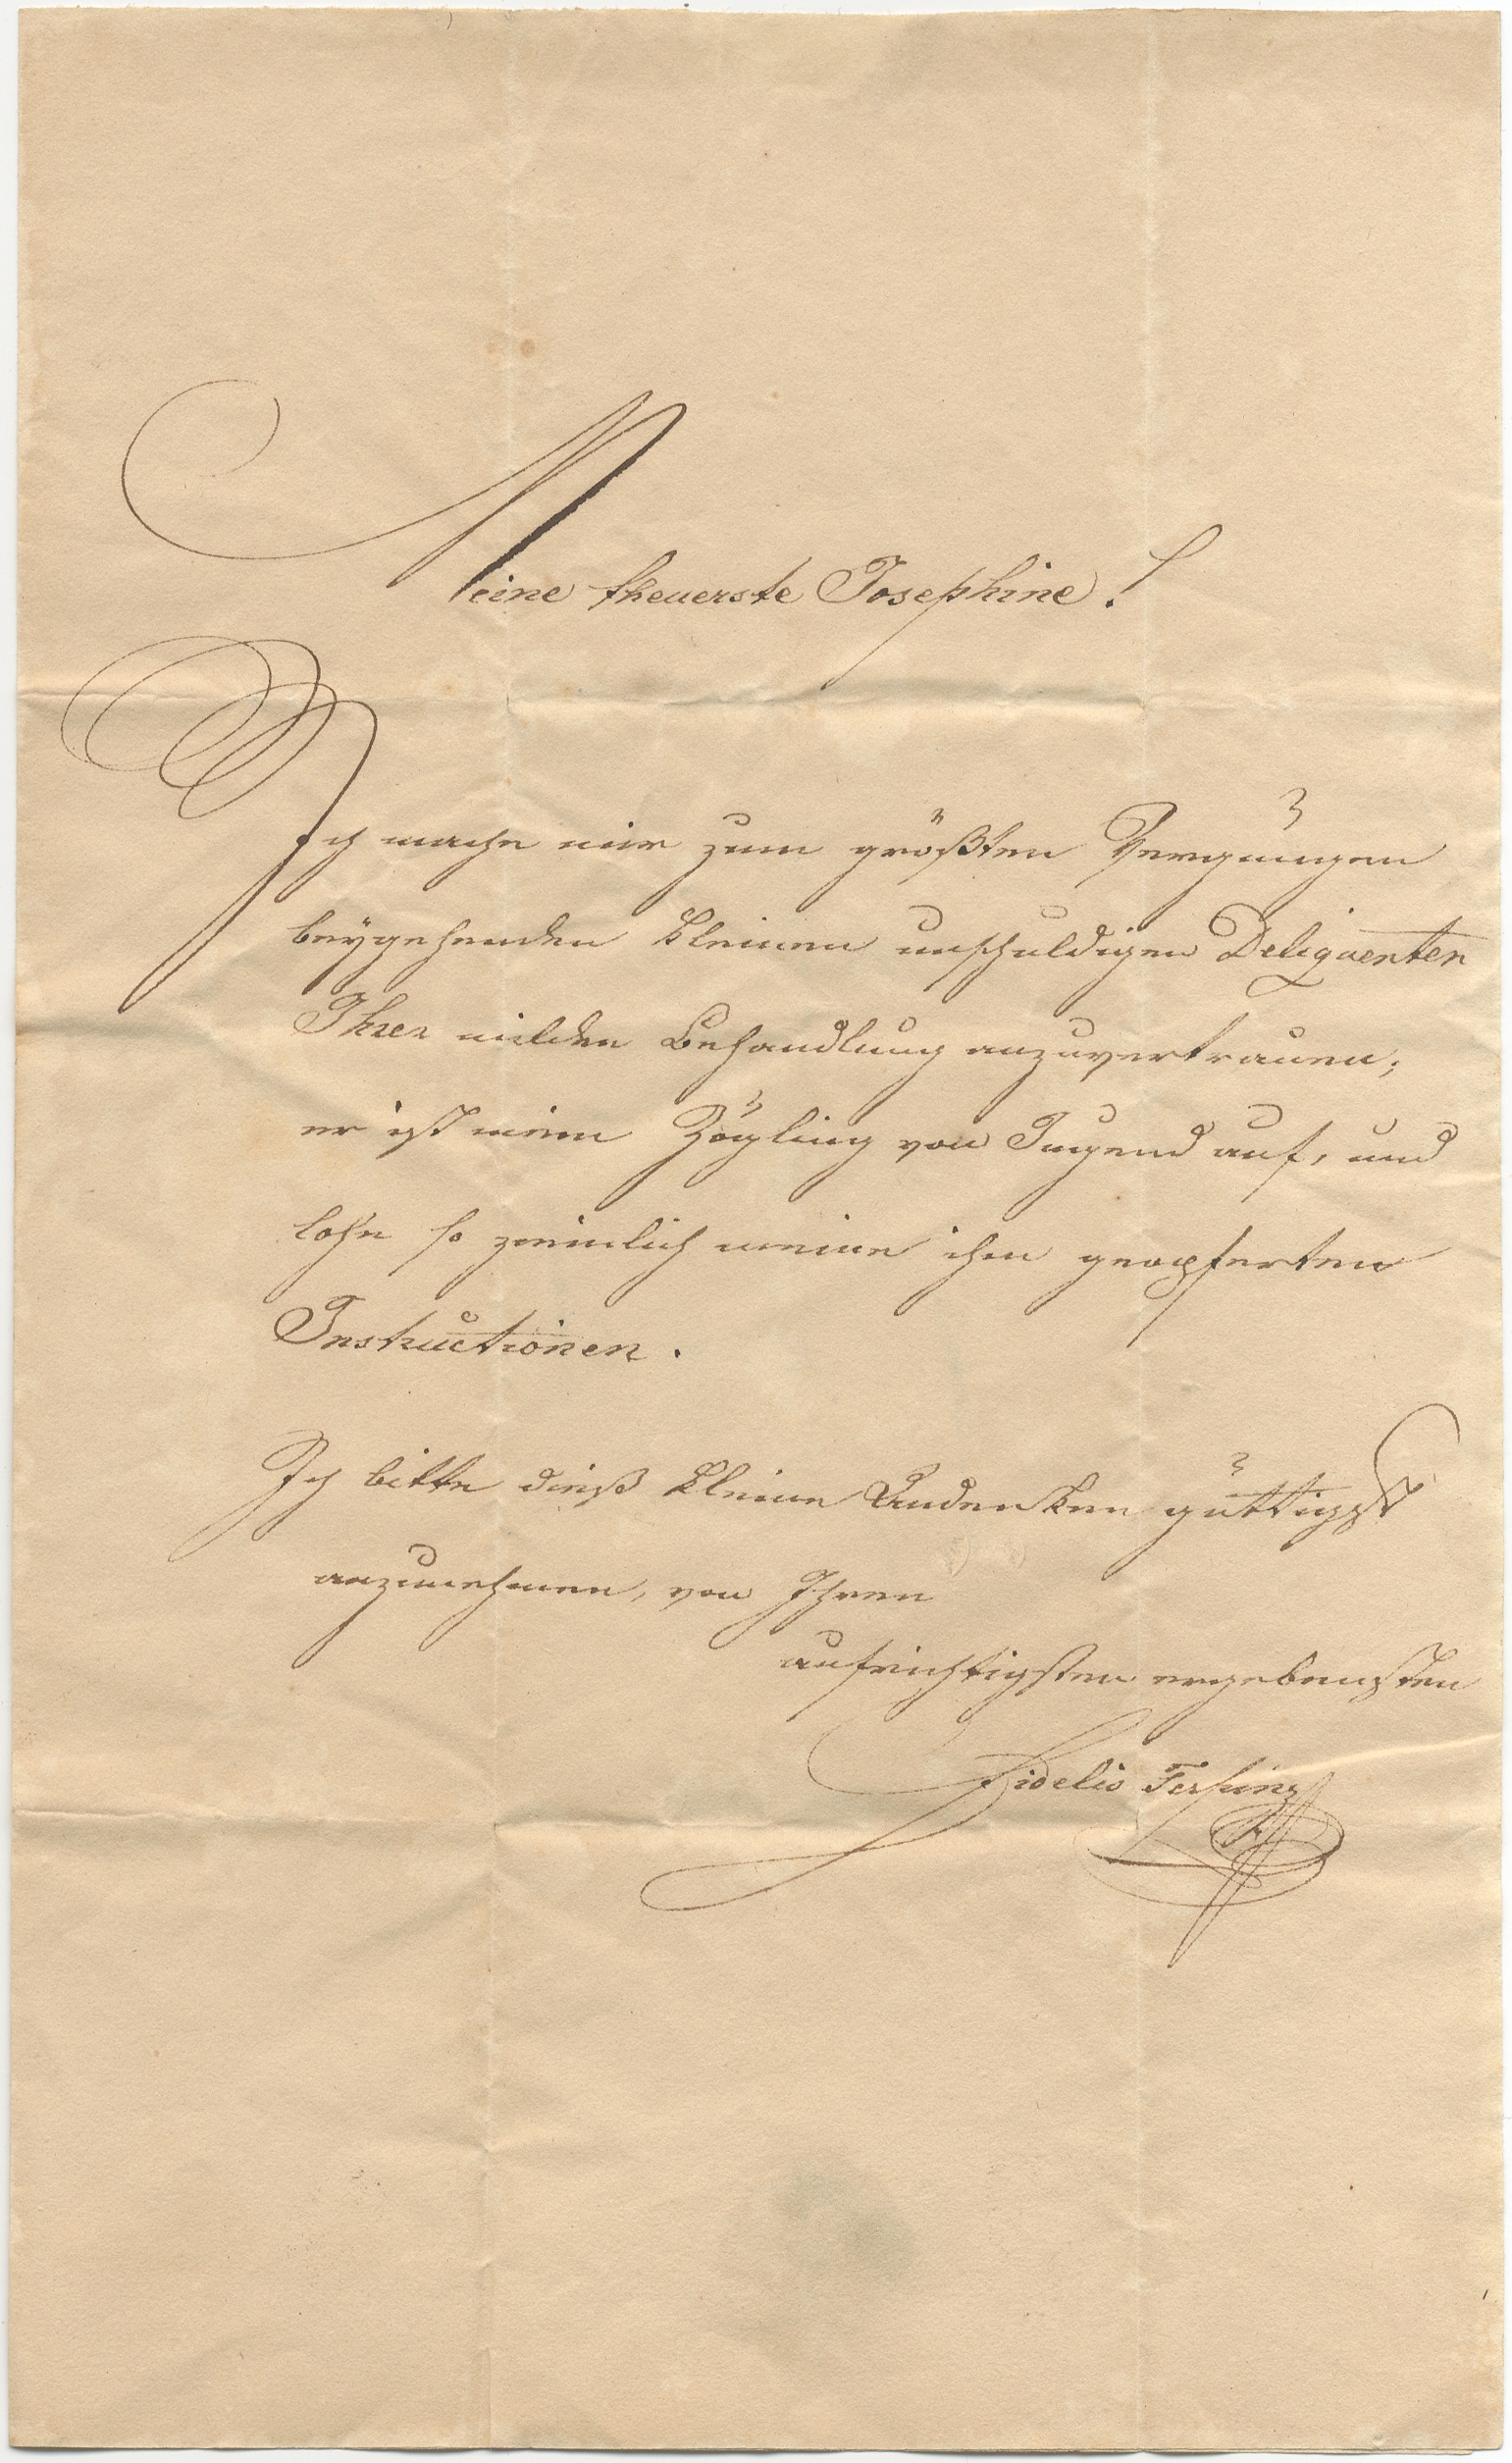 Meine theuerste Josephine!
Ich mache mir zum größten Vergnügen
beÿgehenden kleinen unschuldigen Deliquenten
Ihrer milden Behandlung anzuvertrauen;
er ist mein Zögling von Jugend auf, und
lohn so zeimlich meine ihm geopferten
Instructionen.
Ich bitte dieß kleine Andenken güttigst
anzunehmen, von Ihren
aufrichtigsten ergebensten
Fidelio